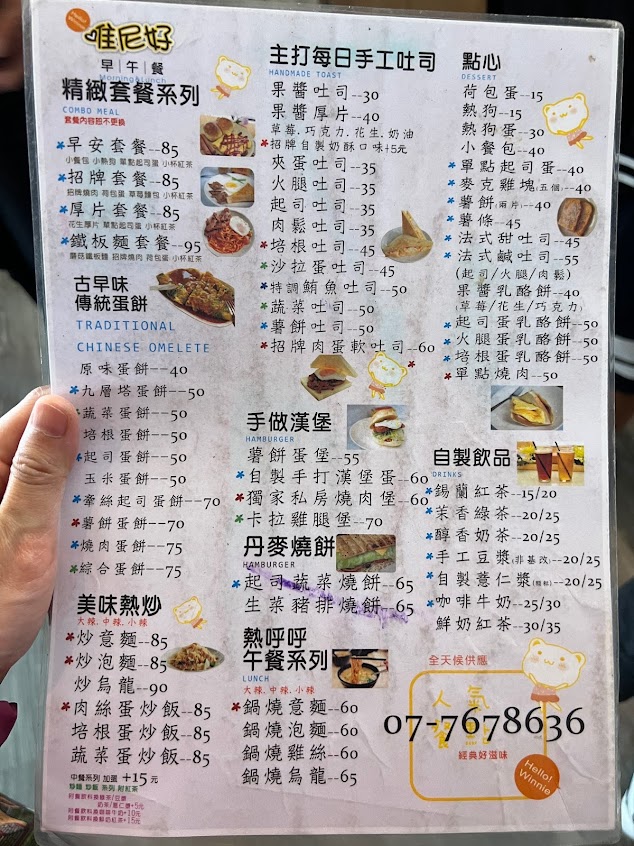 Hello! Winnie
唯尼好
早|午|餐
Morning&Lunch
精緻套餐系列
COMBO MEAL
套餐內容恕不更換
*早安套餐--85
小餐包 小熱狗 單點起司蛋 小杯紅茶
*招牌套餐--85
招牌燒肉 荷包蛋 草莓麵包 小杯紅茶
*厚片套餐--85
花生厚片 單點起司蛋 小杯紅茶
*鐵板麵套餐--95
蘑菇鐵板麵 招牌燒肉 荷包蛋 小杯紅茶
古早味
傳統蛋餅
TRADITIONAL
CHINESE OMELETE
原味蛋餅--40
*九層塔蛋餅--50
*蔬菜蛋餅--50
*培根蛋餅--50
*起司蛋餅--50
玉米蛋餅--50
*牽絲起司蛋餅--70
*薯餅蛋餅--70
*燒肉蛋餅--75
*綜合蛋餅--75
美味熱炒
大辣.中辣.小辣
*炒意麵--85
*炒泡麵--85
炒烏龍--90
*肉絲蛋炒飯--85
培根蛋炒飯--85
蔬菜蛋炒飯--85
中餐系列 加蛋 +15元
炒麵 炒飯 系列 附紅茶
附餐飲料換綠茶/豆漿
奶茶/薏仁漿+5元
附餐飲料換咖啡牛奶+10元
附餐飲料換鮮奶紅茶+15元
主打每日手工吐司
HANDMADE TOAST
果醬吐司--30
果醬厚片--40
草莓.巧克力.花生.奶油
*招牌自製奶酥口味+5元
夾蛋吐司--35
火腿吐司--35
起司吐司--35
肉鬆吐司--35
*培根吐司--45
*沙拉蛋吐司--45
*特調鮪魚吐司--50
*蔬菜吐司--50
*薯餅吐司--50
*招牌肉蛋軟吐司--60
手做漢堡
HAMBURGER
薯餅蛋堡--55
*自製手打漢堡蛋--60
*獨家私房燒肉堡--60
*卡拉雞腿堡--70
丹麥燒餅
HAMBURGER
*起司蔬菜燒餅--65
生菜豬排燒餅--65
熱呼呼
午餐系列
LUNCH
大辣.中辣.小辣
*鍋燒意麵--60
鍋燒泡麵--60
鍋燒雞絲--60
鍋燒烏龍--65
點心
DESSERT
荷包蛋--15
熱狗--15
熱狗蛋--30
小餐包--40
*單點起司蛋--40
*麥克雞塊(五個)--40
*薯餅(兩片)--40
*薯條--45
*法式甜吐司--45
*法式鹹吐司--55
(起司/火腿/肉鬆)
果醬乳酪餅--40
(草莓/花生/巧克力)
*起司蛋乳酪餅--50
*火腿蛋乳酪餅--50
*培根蛋乳酪餅--50
*單點燒肉--50
自製飲品
DRINKS
*錫蘭紅茶--15/20
*茉香綠茶--20/25
*醇香奶茶--20/25
*手工豆漿(非基改)--20/25
*自製薏仁漿(糙米)--20/25
*咖啡牛奶--25/30
鮮奶紅茶--30/35
全天候供應
人氣
07-7678636
經典好滋味
Hello! Winnie